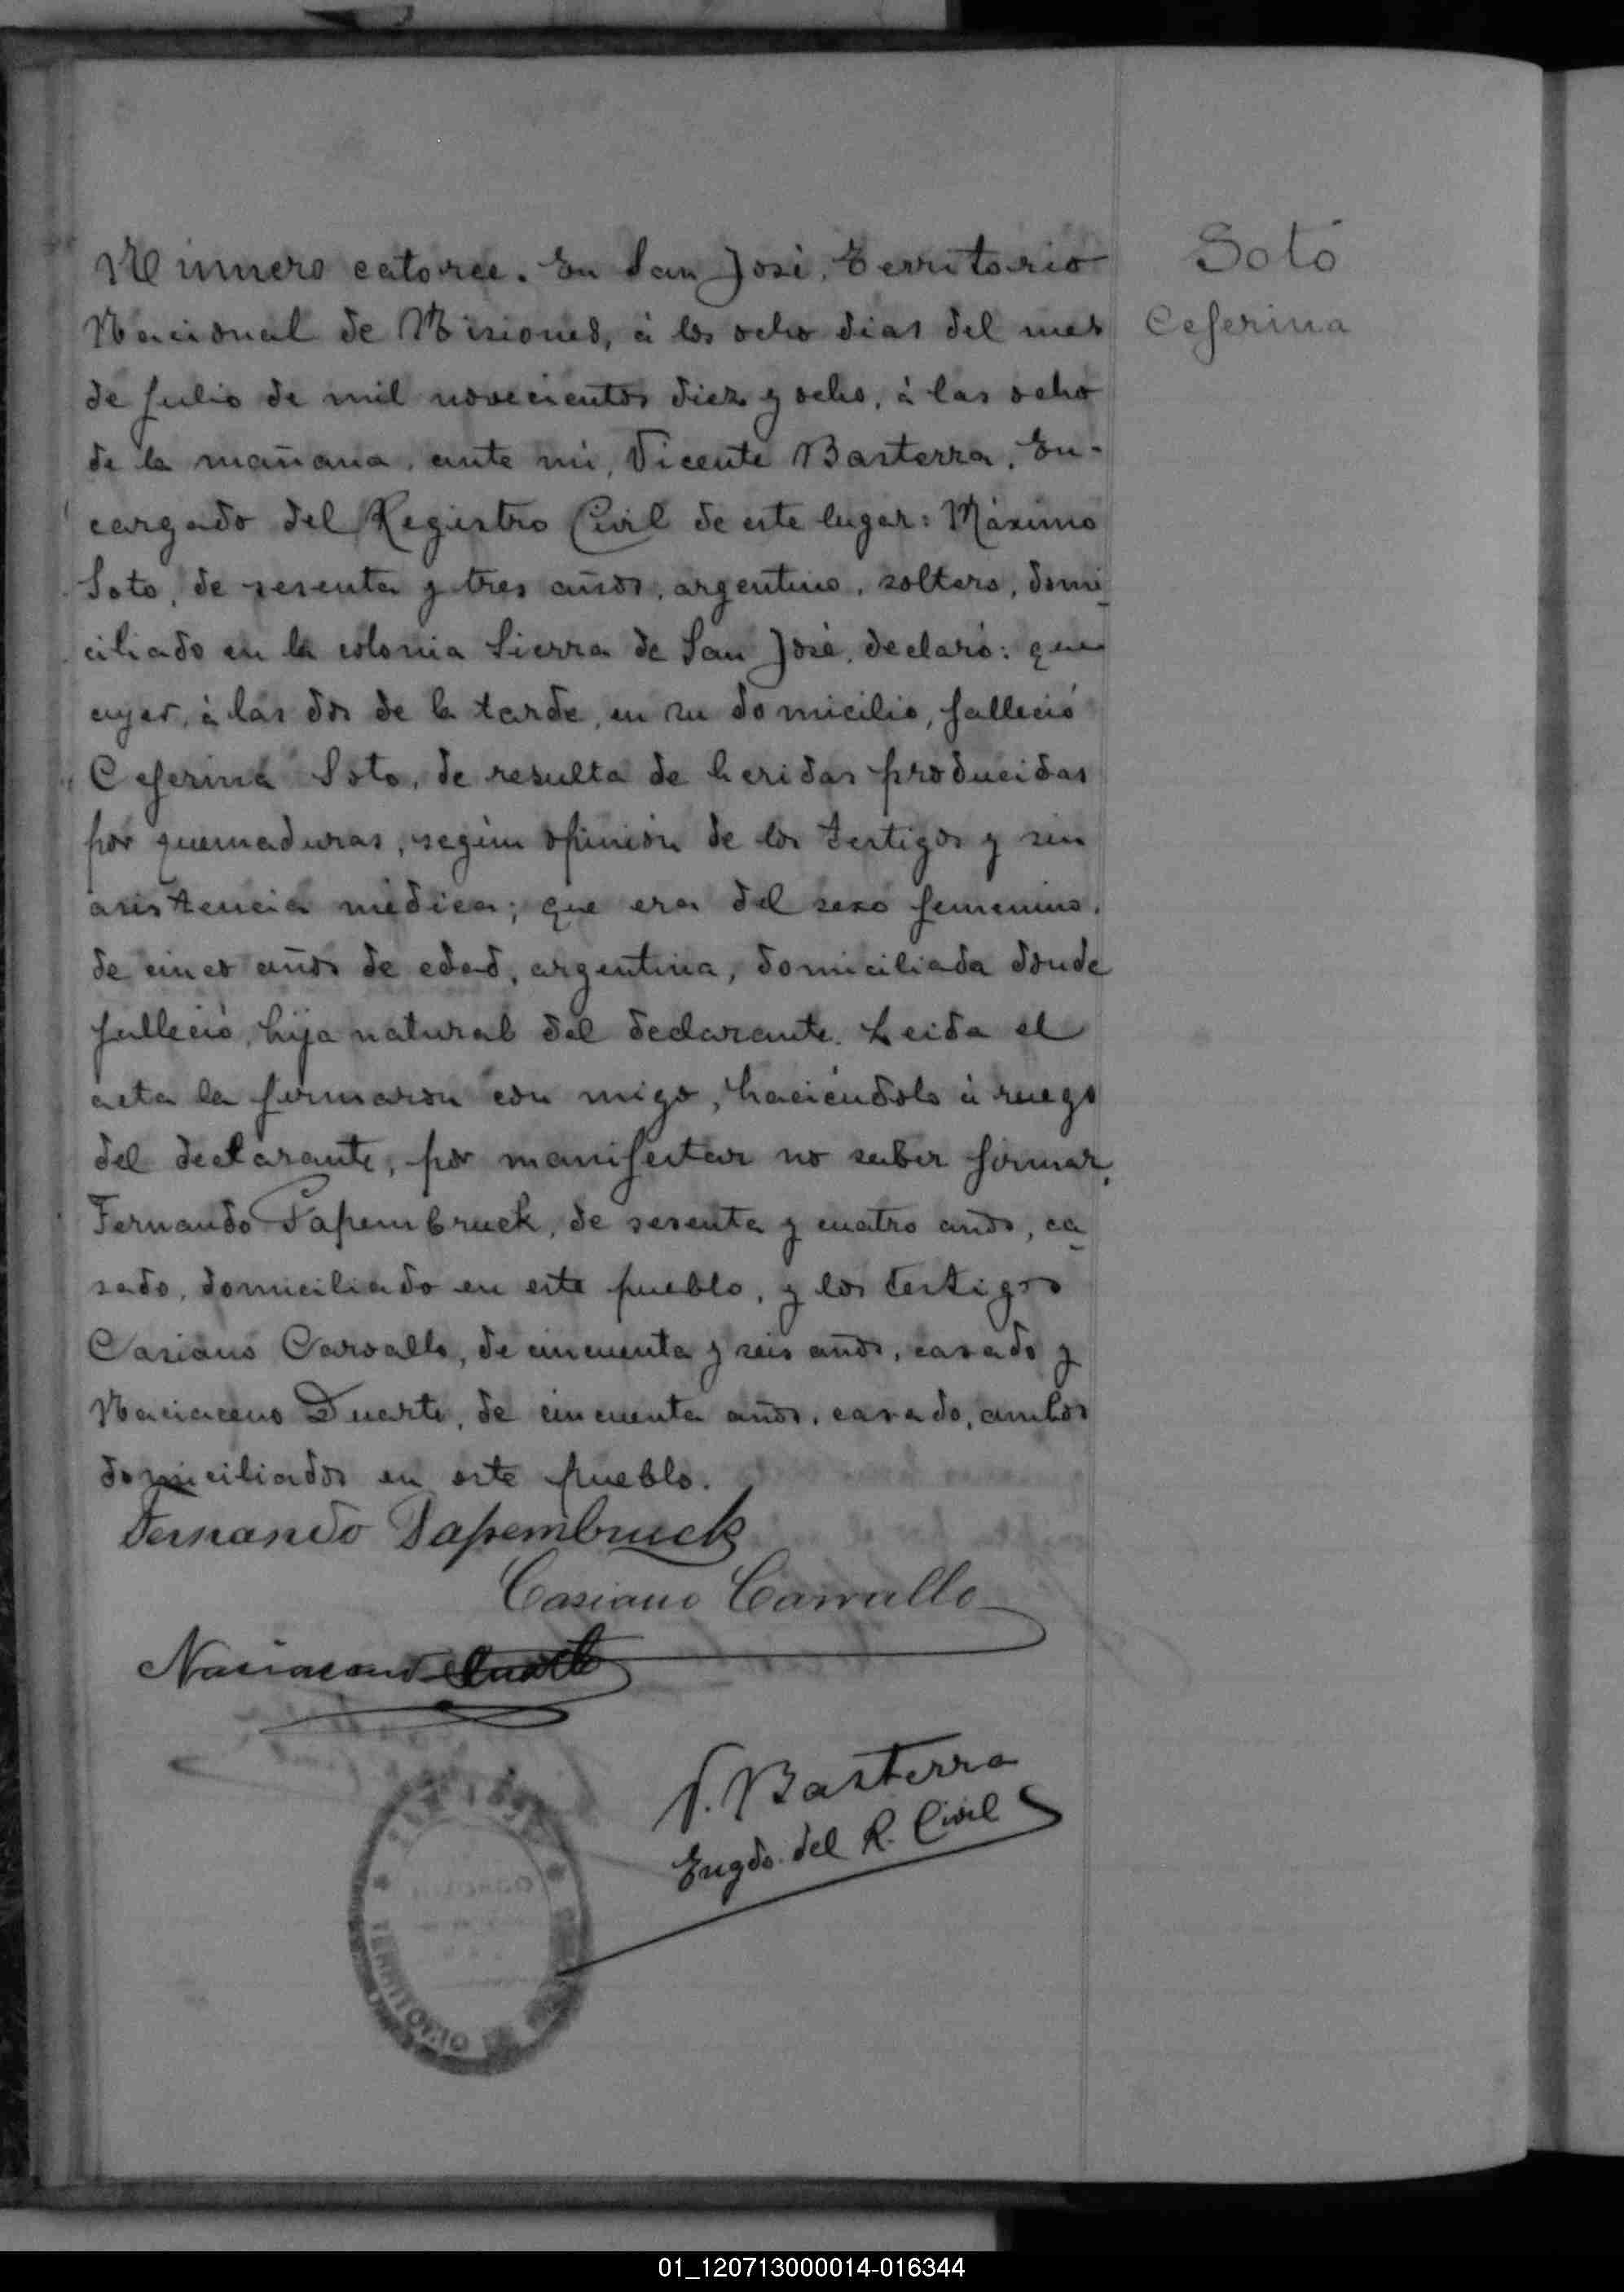 Número catorce. En San José, Territorio
Nacional de Misiones, á los ocho dias del mes
de Julio de mil novecientos diez y ocho, á las ocho
de la mañana, ante mi, Vicente Basterra, En-
cargado del Registro Civil de este lugar: Máximo
Soto, de sesenta y tres años, argentino, soltero, domi
ciliado en la colonia Sierra de San José, declaró: que
ayer, á las dos de la tarde, en su domicilio, falleció
Ceferina Soto, de resulta de heridas producidas
por quemaduras, según opinión de los testigos y sin
asistencia médica; que era del sexo femenino,
de cinco años de edad, argentina, domiciliada donde
falleció, hija natural del declarante. Leida el
acta la firmaron con migo, haciéndolo á ruego
del declarante, por manifestar no saber firmar,
Fernando Papembruck, de sesenta y cuatro años, ca
sado, domiciliado en este pueblo, y los testigos
Casiano Carvallo, de cincuenta y seis años, casado y
Naciaceno Duarte, de cincuenta años, casado, ambos
domiciliados en este pueblo.
Fernando Papembruck
Casiano Carvallo
Naciaceno Duarte
V. Basterra
Engdo. del R. Civil
SAN JOSÉ
TERRITORIO
Soto
Ceferina
01_120713000014-016344